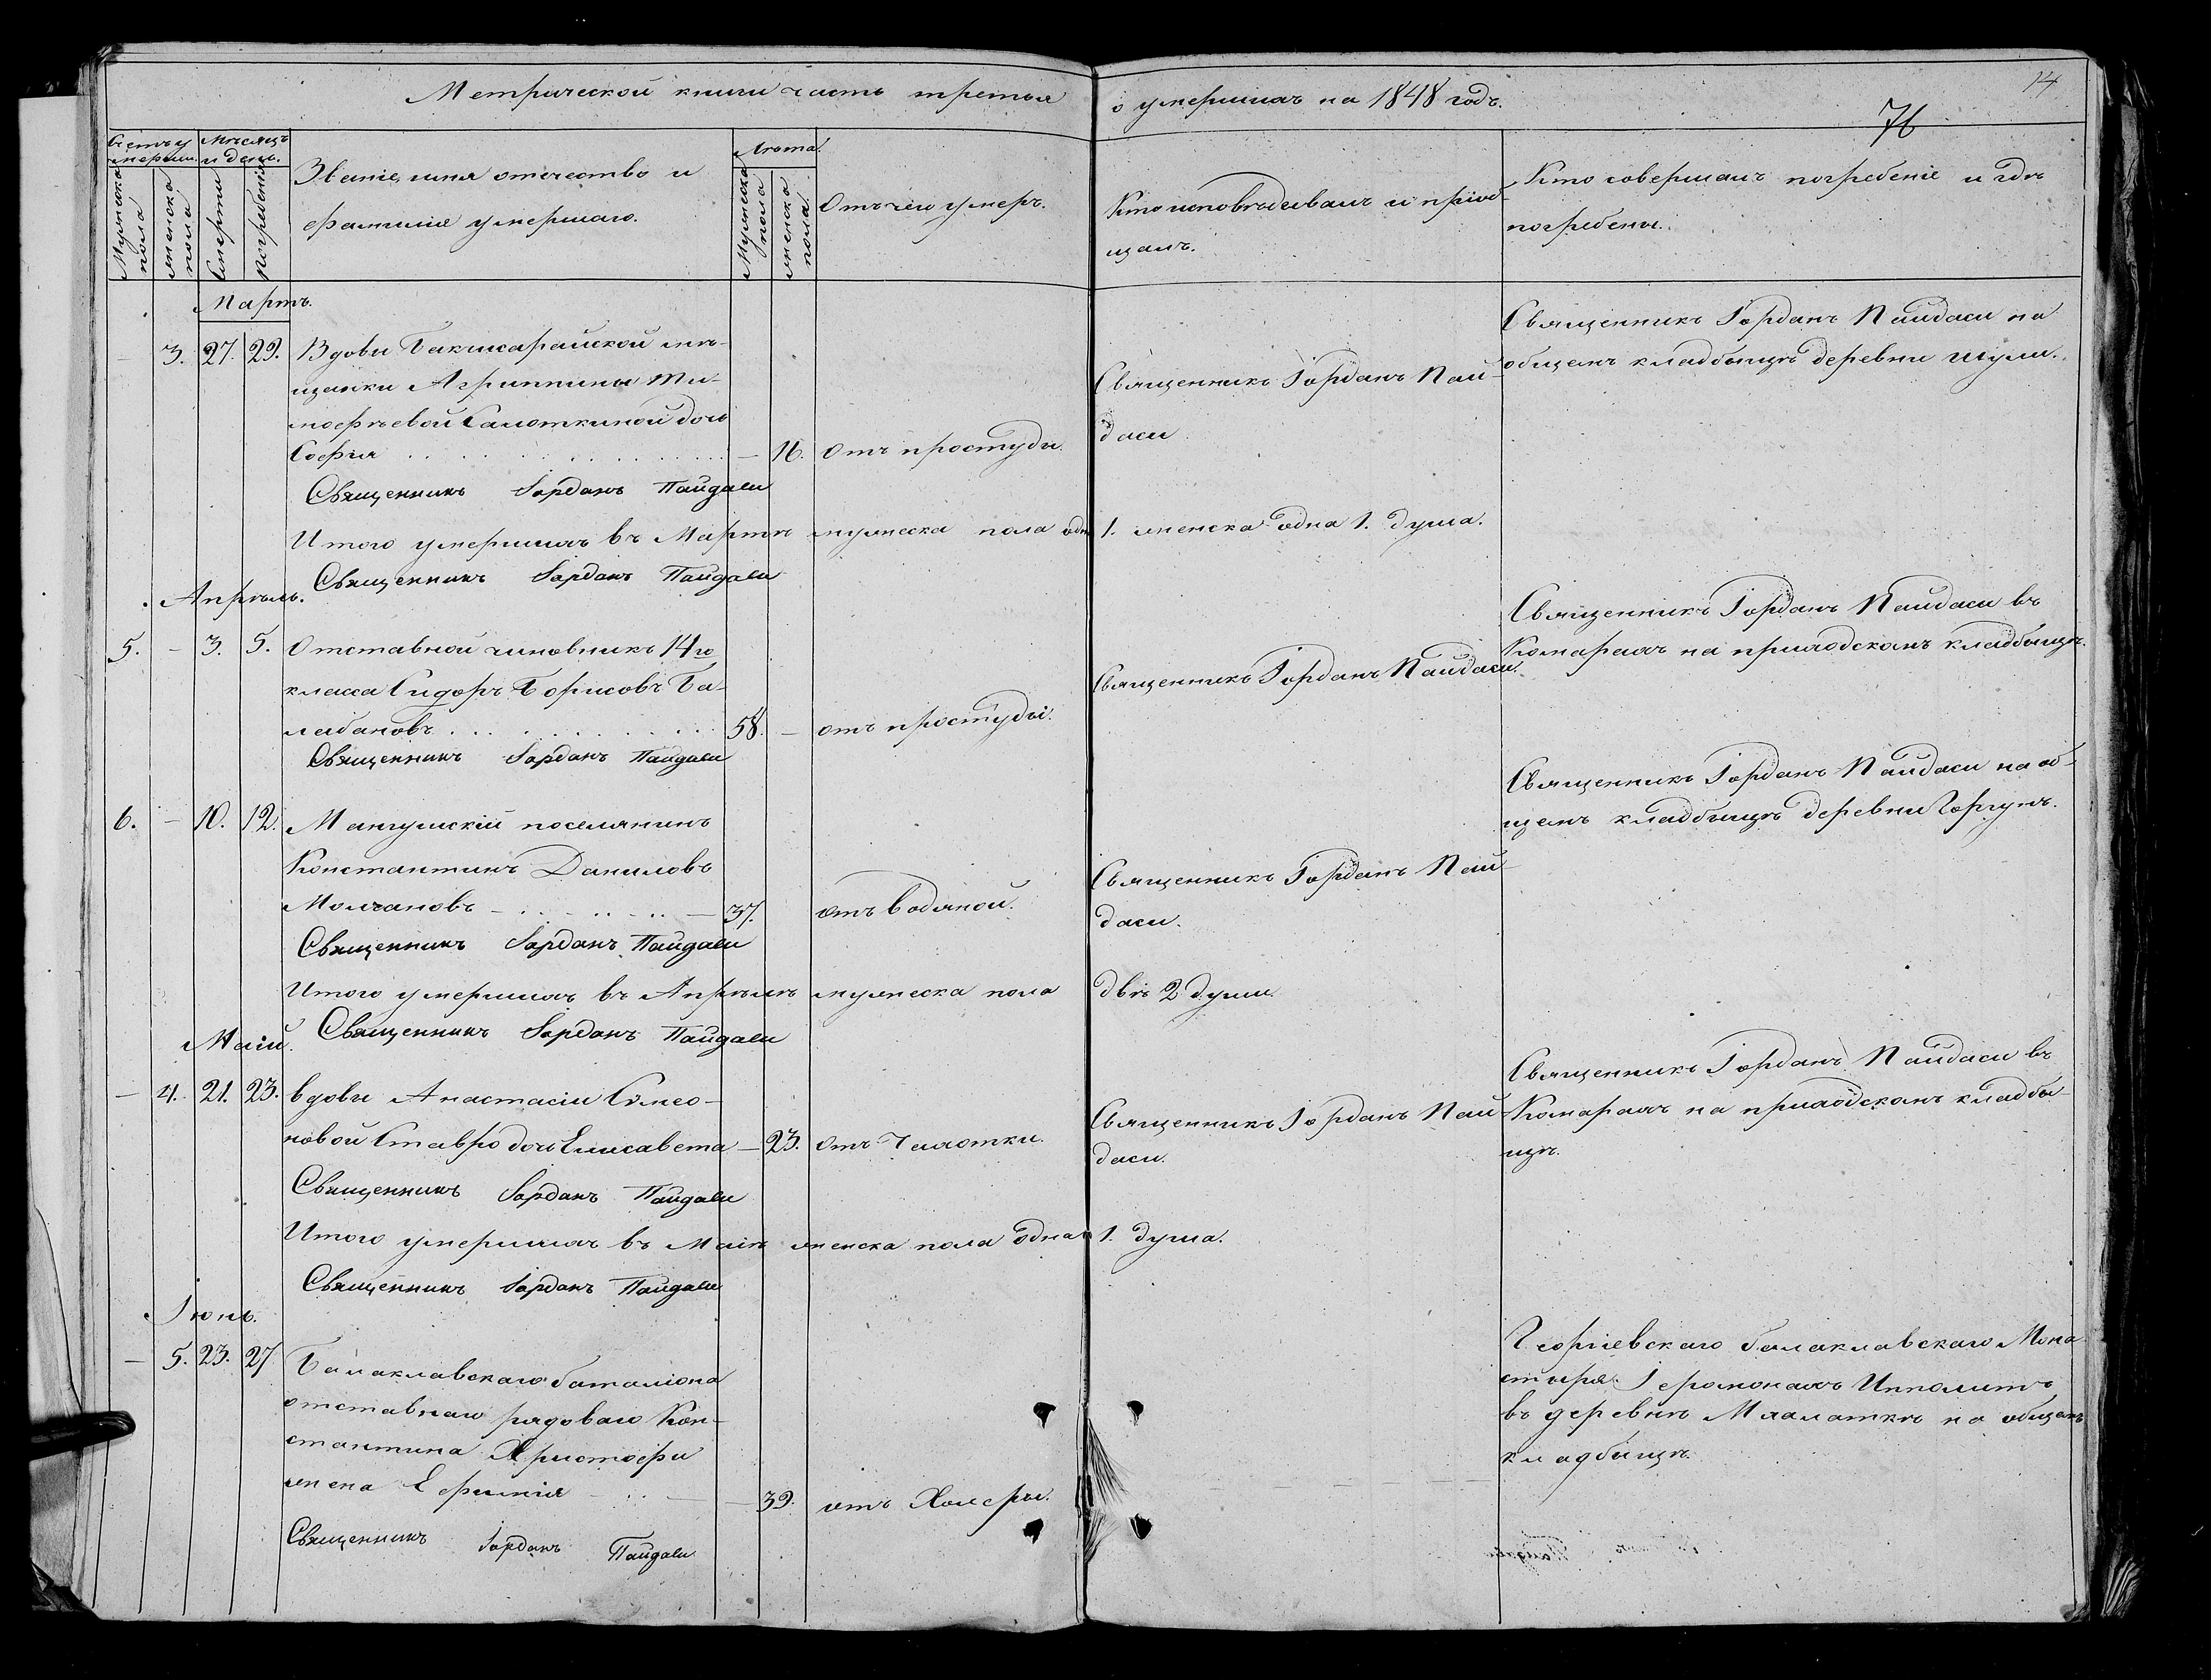 Метрической книги часть третья о умершихъ на 1848 годъ.
14
76
Счетъ умершихъ.
Мѣсяцъ и день.
Мужеска пола
женска пола
Смерти
погребенія
Званіе, имя отчество и
фамилія умершаго.
Лѣта.
Мужеска пола
женска пола.
Отъ чего умеръ.
Кто исповѣдывалъ и пріоб-
щалъ.
Кто совершалъ погребеніе и гдѣ
погребены.
Мартъ.
— 3. 27. 29. Вдовы Бакчисарайской мѣ-
щанки Агриппины Ти-
мофѣевой Самоткиной дочь
Софія — 16. Отъ простуды.
Священникъ Іорданъ Пай-
даси
Священникъ Іорданъ Пайдаси на
общемъ кладбищѣ деревни Шули.
Священникъ Іорданъ Пайдаси
Итого умершихъ въ Мартѣ мужеска пола одна 1. женска одна 1. душа.
Священникъ Іорданъ Пайдаси
Апрѣль.
5. — 3. 5. Отставной чиновникъ 14го
класса Сидоръ Борисовъ Ба-
лабановъ 58. — отъ простуды.
Священникъ Іорданъ Пайдаси.
Священникъ Іорданъ Пайдаси въ
Комарахъ на приходскомъ кладбищѣ.
Священникъ Іорданъ Пайдаси
6. — 10. 12. Мангушскій поселянинъ
Константинъ Даниловъ
Молчановъ — 37. отъ водяной.
Священникъ Іорданъ Пай-
даси.
Священникъ Іорданъ Пайдаси на об-
щемъ кладбищѣ деревни Чоргунѣ.
Священникъ Іорданъ Пайдаси
Итого умершихъ въ Апрѣлѣ мужеска пола двѣ 2 души.
Священникъ Іорданъ Пайдаси
Маій.
— 4. 21. 23. вдовы Анастасіи Симео-
новой Ставро дочь Елисавета — 23. отъ Чахотки.
Священникъ Іорданъ Пай-
даси.
Священникъ Іорданъ Пайдаси въ
Комарахъ на приходскомъ кладби-
щѣ.
Священникъ Іорданъ Пайдаси
Итого умершихъ въ Маіѣ женска пола одна 1. душа.
Священникъ Іорданъ Пайдаси
Іюнь.
— 5. 23. 27. Балаклавскаго баталіона
отставнаго рядоваго Кон-
стантина Христофи
жена Ефимія — 39. отъ Холеры.
Георгіевскаго балаклавскаго Мона
стыря Іеромонахъ Ипполитъ
въ деревнѣ Мхалаткѣ на общемъ
кладбищѣ.
Священникъ Іорданъ Пайдаси